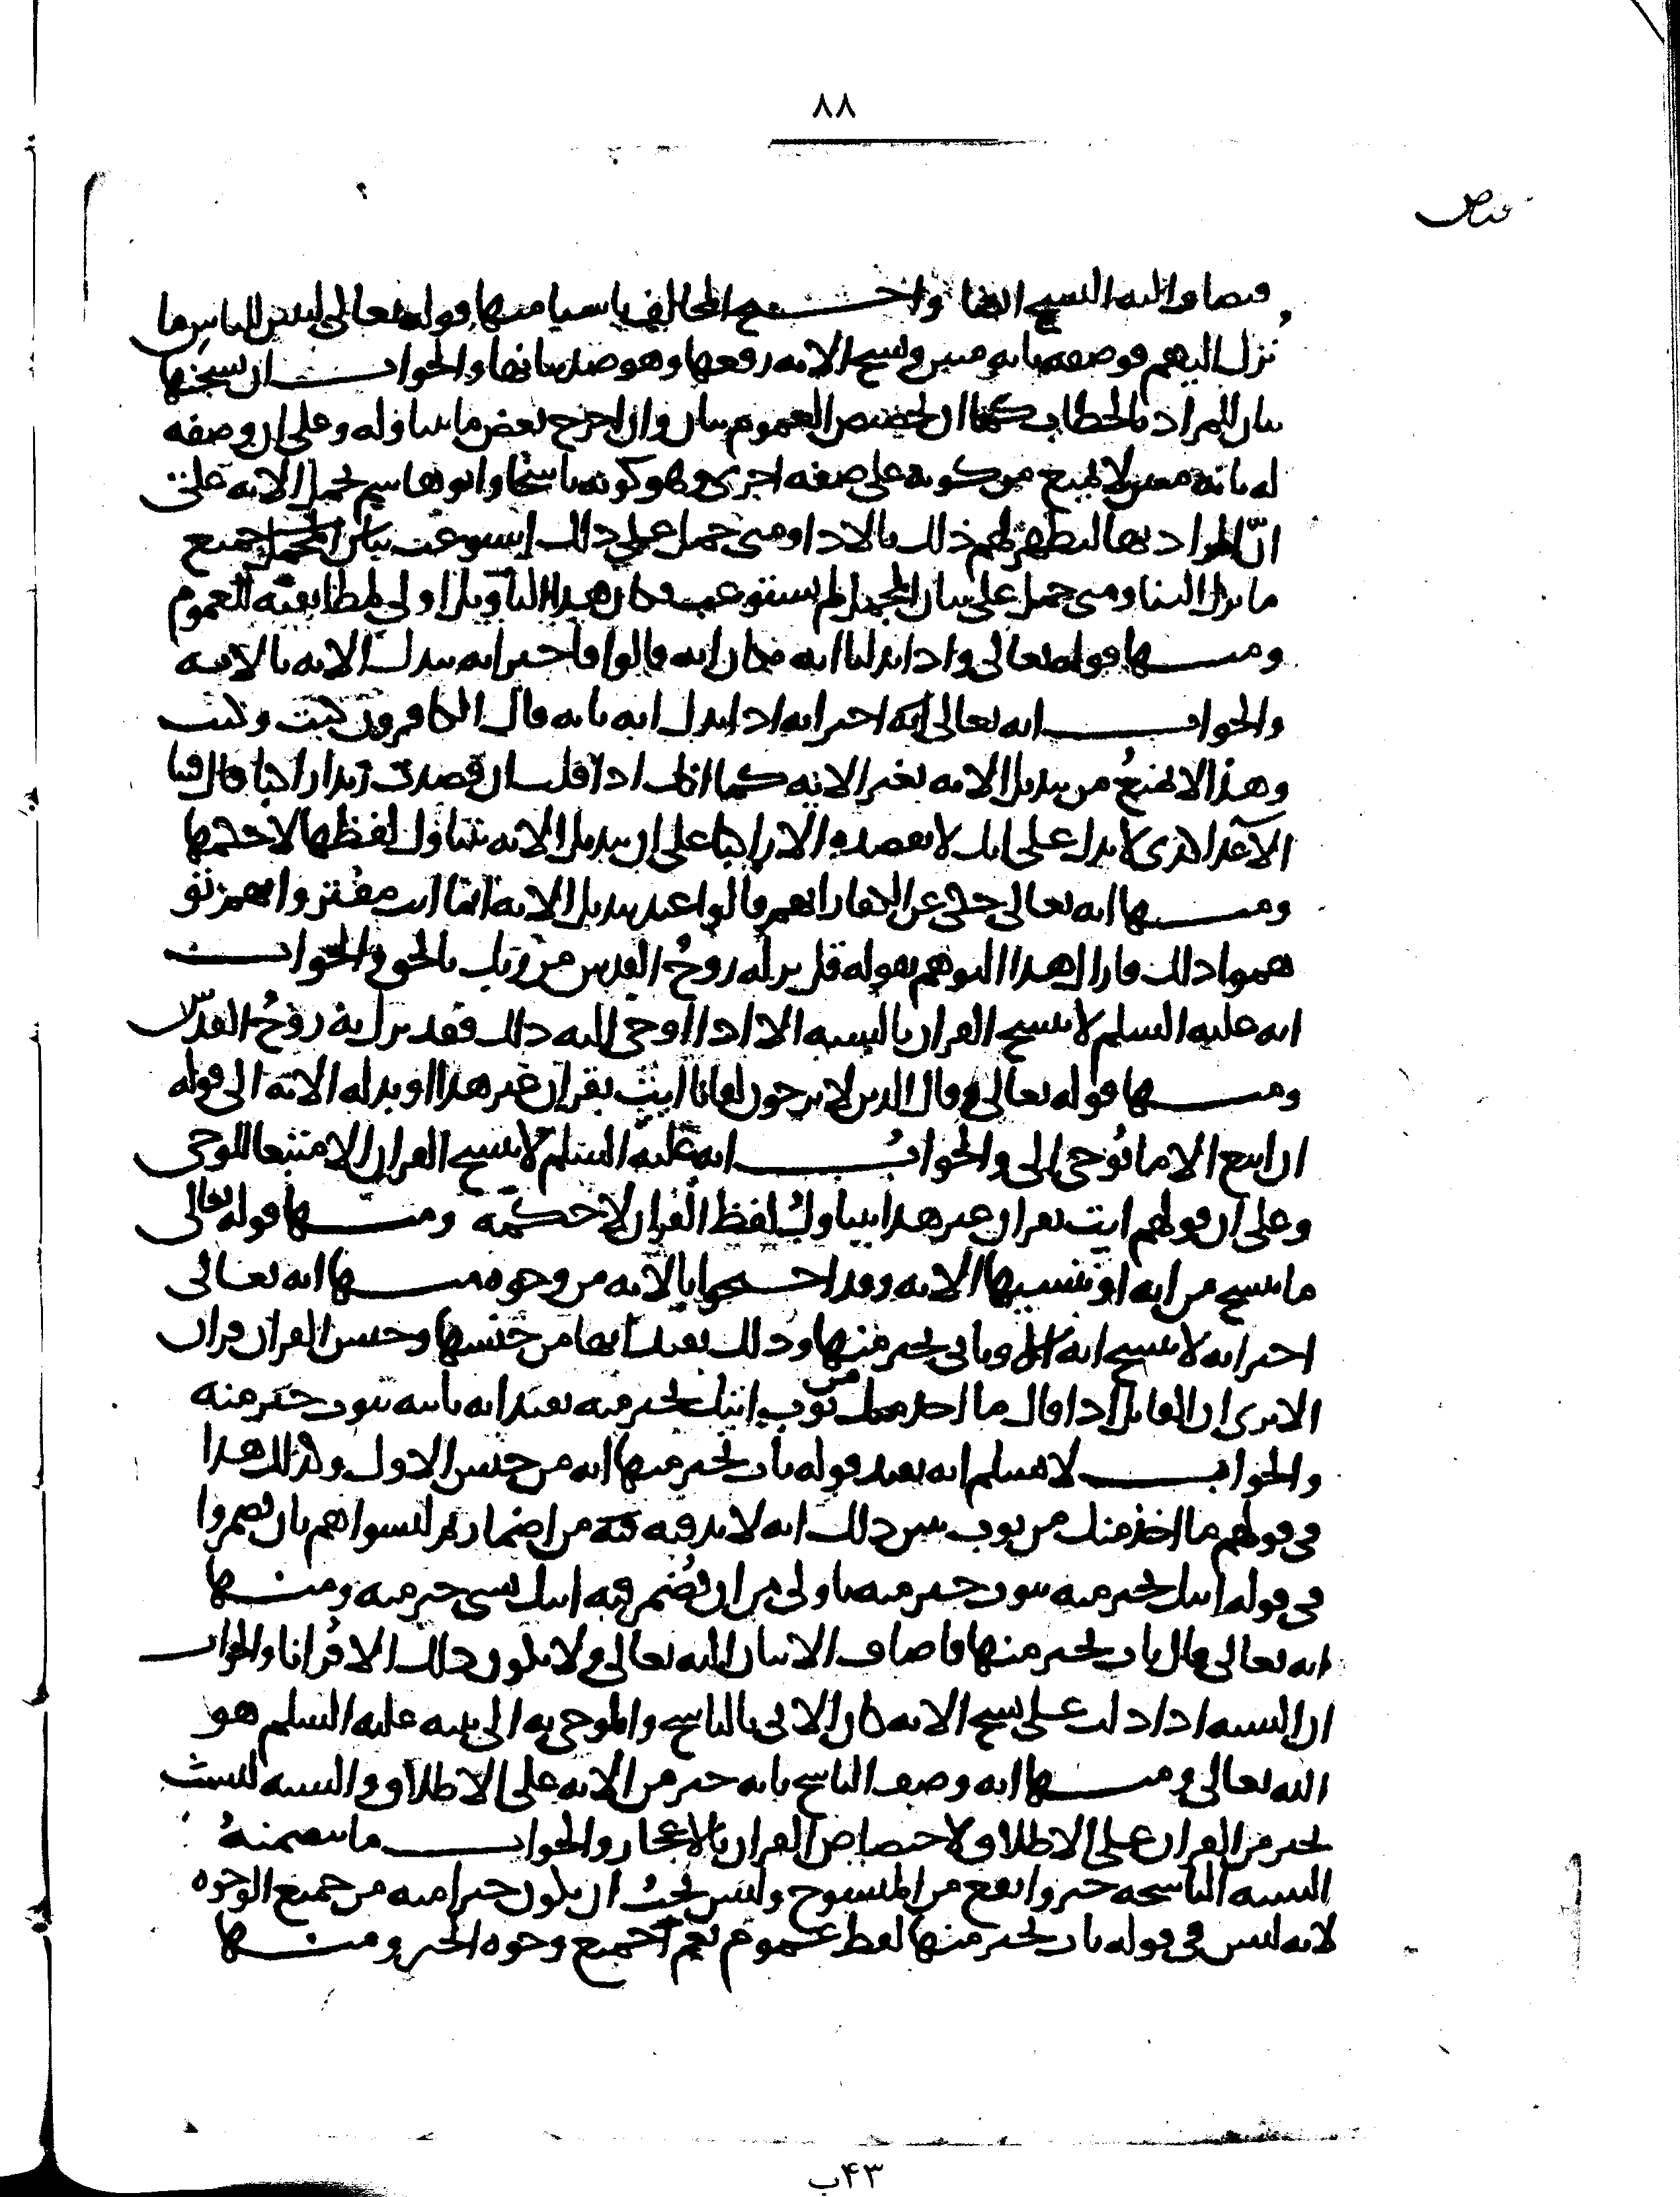 ٨٨
واحتج المخالف باشيا منها قوله تعالى لتبين للناس ما
نُزل اليهم فوصفه بانه مبين ونسخ الايه رفعها وهو ضد بيانها والجواب ان نسخها
بيان للمراد بالخطاب كما ان تخصيص العموم بيان وان اخرج بعض ما يتناوله وعلى ان وصفه
له بانه مبين لا يمنع من كونه على صفه اخرى وهو كونه ناسخا وابو هاشم يحمل الايه على
انّ المراد بها لتظهر لهم ذلك بالادا ومتى حمل على ذلك استوعب جميع
ما نزل الينا ومتى حمل على بيان المجمل لم يستوعب فكان هذا التاويل اولى لمطابقته العموم
ومنها قوله تعالى واذا بدلنا ايه مكان ايه قالوا فاخبر انه يبدل الايه بالايه
والجواب انه تعالى اخبر انه اذا بدل ايه بايه قال الكافرون كيت وكيت
وهذا لا يمنعُ من تبديل الايه بغير الايه كما انك اذا قلت ان قصدت زيدا راكبا قال
لا يدل على انك لا تقصده الا راكبا على ان تبديل الايه يتناول لفظها لا حكمها
ومنها انه تعالى حكى عن الكفار انهم قالوا عند تبديل الايه انما انت مفتر وانهم تو
هموا ذلك فازال هذا التوهم بقوله قل نزله روحُ القدس من ربك بالحق والجواب
انه عليه السلم لا ينسخ القران بالسنه الا اذا اوحى اليه ذلك فقد نزل به روحُ القدس
ومنها قوله تعالى وقال الذين لا يرجون لقانا ايت بقران غير هذا او بدله الايه الى قوله
ان اتبع الا ما يُوحى الى والجوابُ انه عليه السلم لا ينسخ القران الا متبعا للوحى
وعلى ان قولهم ايت بقران غير هذا يتناول لفظ القران لا حكمه ومنها قوله تعالى
ما ننسخ من ايه او ننسها الايه وقد احتجوا بالايه من وجوه منها انه تعالى
اخبر انه لا ينسخ ايه الا وياتى بخير منها وذلك يفيد انها من جنسها وجنس القران قران
الا ترى ان القايل اذا قال ما اخذ منك من ثوب اتيك بخير منه يفيد انه ياتيه بثوب خير منه
والجواب لا نسلم انه يفيد قوله نات بخير منها انه من جنس الاول وكذلك هذا
فى قولهم ما اخذ منك من ثوب يبين ذلك انه لا بد فيه من اضمار فليسوا هم بان يضمروا
فى قوله اتيك بخير منه بثوب خير منه باولى من ان نُضمر فيه اتيك بشى خير منه ومنها
انه تعالى قال نات بخير منها فاضاف الاتيان اليه تعالى ولا يكون ذلك الا قُرانا والجواب
ان السنه اذا دلت على نسخ الايه كان الاتى بالناسخ والموحى به الى نبيه عليه السلم هو
الله تعالى ومنها انه وصف الناسخ بانه خير من الايه على الاطلاق والسنه ليست
بخير من القران على الاطلاق لاختصاص القران بالاعجاز والجواب ما تتضمنهُ
السنه الناسخه خير وانفع من المنسوخ وليس يجبُ ان يكون خيرا منه من جميع الوجوه
لانه ليس فى قوله نات بخير منها لفظ عموم يعم جميع وجوه الخير ومنها
۴۳ب